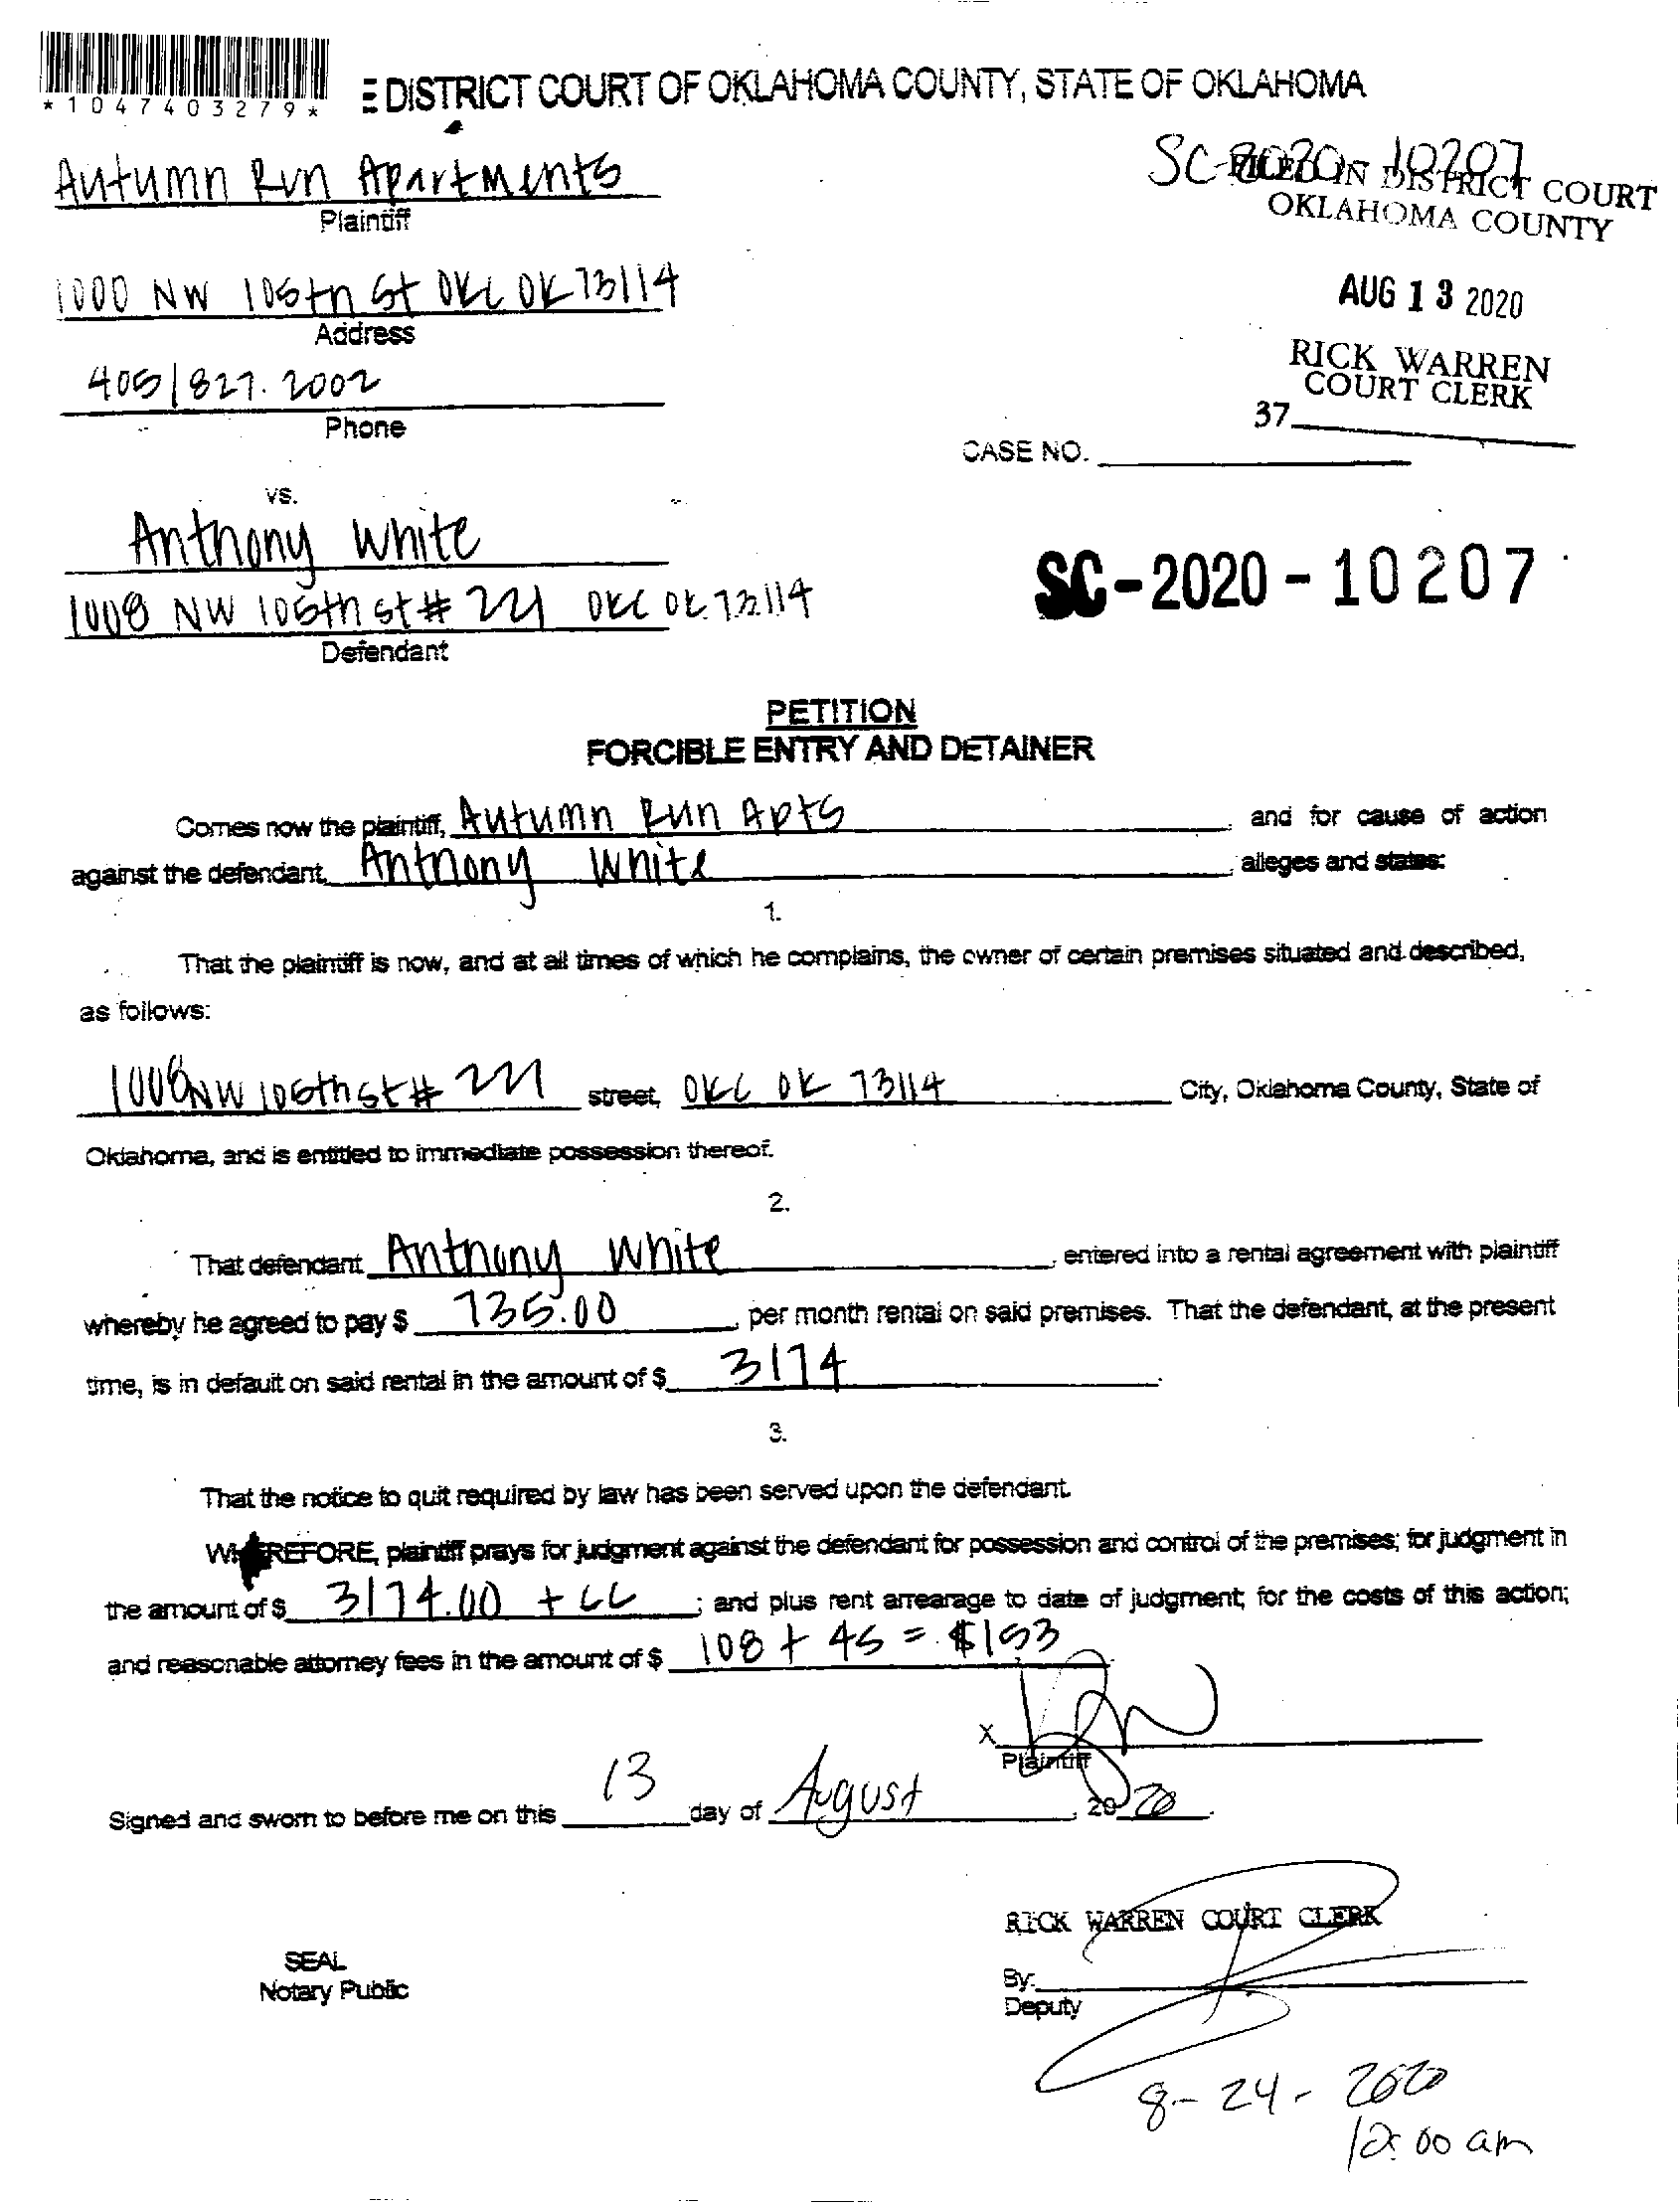 *1047403279*
E DISTRICT COURT OF OKLAHOMA COUNTY, STATE OF OKLAHOMA
Autumn Run Apartments
Plaintiff
SC-2020-10207
FILED IN DISTRICT COURT
OKLAHOMA COUNTY
1000 NW 105th St OKC OK 73114
Address
AUG 13 2020
405/827.2002
Phone
RICK WARREN
COURT CLERK
37
CASE NO.
vs.
Anthony White
1008 NW 106th st # 221 OKC OK 73114
Defendant
SC-2020-10207
PETITION
FORCIBLE ENTRY AND DETAINER
Comes now the plaintiff, Autumn Run Apts and for cause of action
against the defendant, Anthony White, alleges and states:
1.
That the plaintiff is now, and at all times of which he complains, the owner of certain premises situated and described,
as follows:
1008 NW 106th st # 221 street, OKC OK 73114 City, Oklahoma County, State of
Oklahoma, and is entitled to immediate possession thereof.
2.
That defendant Anthony White, entered into a rental agreement with plaintiff
whereby he agreed to pay $ 735.00, per month rental on said premises. That the defendant, at the present
time, is in default on said rental in the amount of $ 3174.
3.
That the notice to quit required by law has been served upon the defendant.
WHEREFORE, plaintiff prays for judgment against the defendant for possession and control of the premises; for judgment in
the amount of $ 3174.00 + CC; and plus rent arrearage to date of judgment; for the costs of this action;
and reasonable attorney fees in the amount of $ 108 + 45 = $153
X
Plaintiff
Signed and sworn to before me on this 13 day of August, 2020.
RICK WARREN COURT CLERK
SEAL
Notary Public
By:
Deputy
8-24-2020
10:00 am